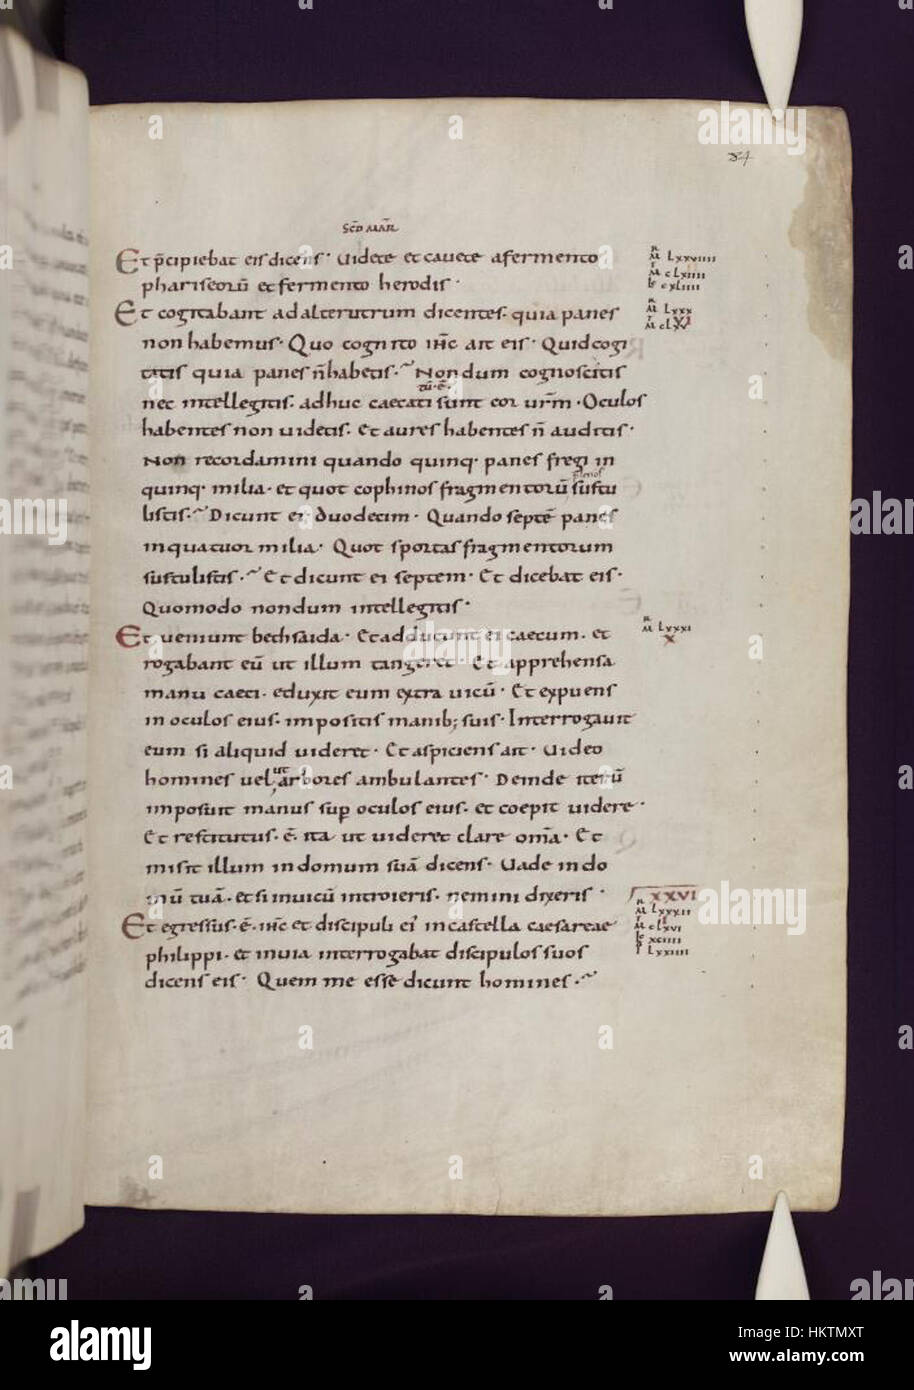 84
SCD MAR
Et p̄cipiebat eis dicens · Uidete et cauete a fermento
phariseorū et fermento herodis ·
Et cogitabant ad alterutrum dicentes · quia panes
non habemus · Quo cognito ih̄c ait eis · Quid cogi
tatis quia panes n̄ habetis · Nondum cognoscitis
nec intellegitis · adhuc caecati sunt cor ur̄m · Oculos
habentes non uidetis · Et aures habentes n̄ auditis ·
Non recordamini quando quinq· panes fregi in
quinq· milia · et quot cophinos fragmentorū sustu
listis · Dicunt ei duodecim · Quando septē panes
in quatuor milia · Quot sportas fragmentorum
sustulistis · Et dicunt ei septem · Et dicebat eis ·
Quomodo nondum intellegitis ·
Et ueniunt bethsaida · Et adducunt ei caecum · et
rogabant eū ut illum tangeret · Et apprehensa
manu caeci · eduxit eum extra uicū · Et expuens
in oculos eius · impositis manib; suis · Interrogauit
eum si aliquid uideret · Et aspiciens ait · Uideo
homines uelut arbores ambulantes · Deinde iterū
imposuit manus sup oculos eius · et coepit uidere ·
Et restitutus · ē · ita ut uideret clare om̄a · Et
misit illum in domum suā dicens · Uade in do
mū tuā · et si in uicū introieris · nemini dixeris ·
Et egressus · ē · ih̄c et discipuli ei' in castella caesareae
philippi · et in uia interrogabat discipulos suos
dicens eis · Quem me esse dicunt homines ·
M Lxxviiii
M cLxiiii
Lc cxLiiii
M Lxxx
M cLxv
VI
M Lxxxi
X
XXVI
M Lxxxii
M cLxvi
Lc xciiii
I Lxxiiii
alamy
alamy
Image ID: HKTMXT
www.alamy.com